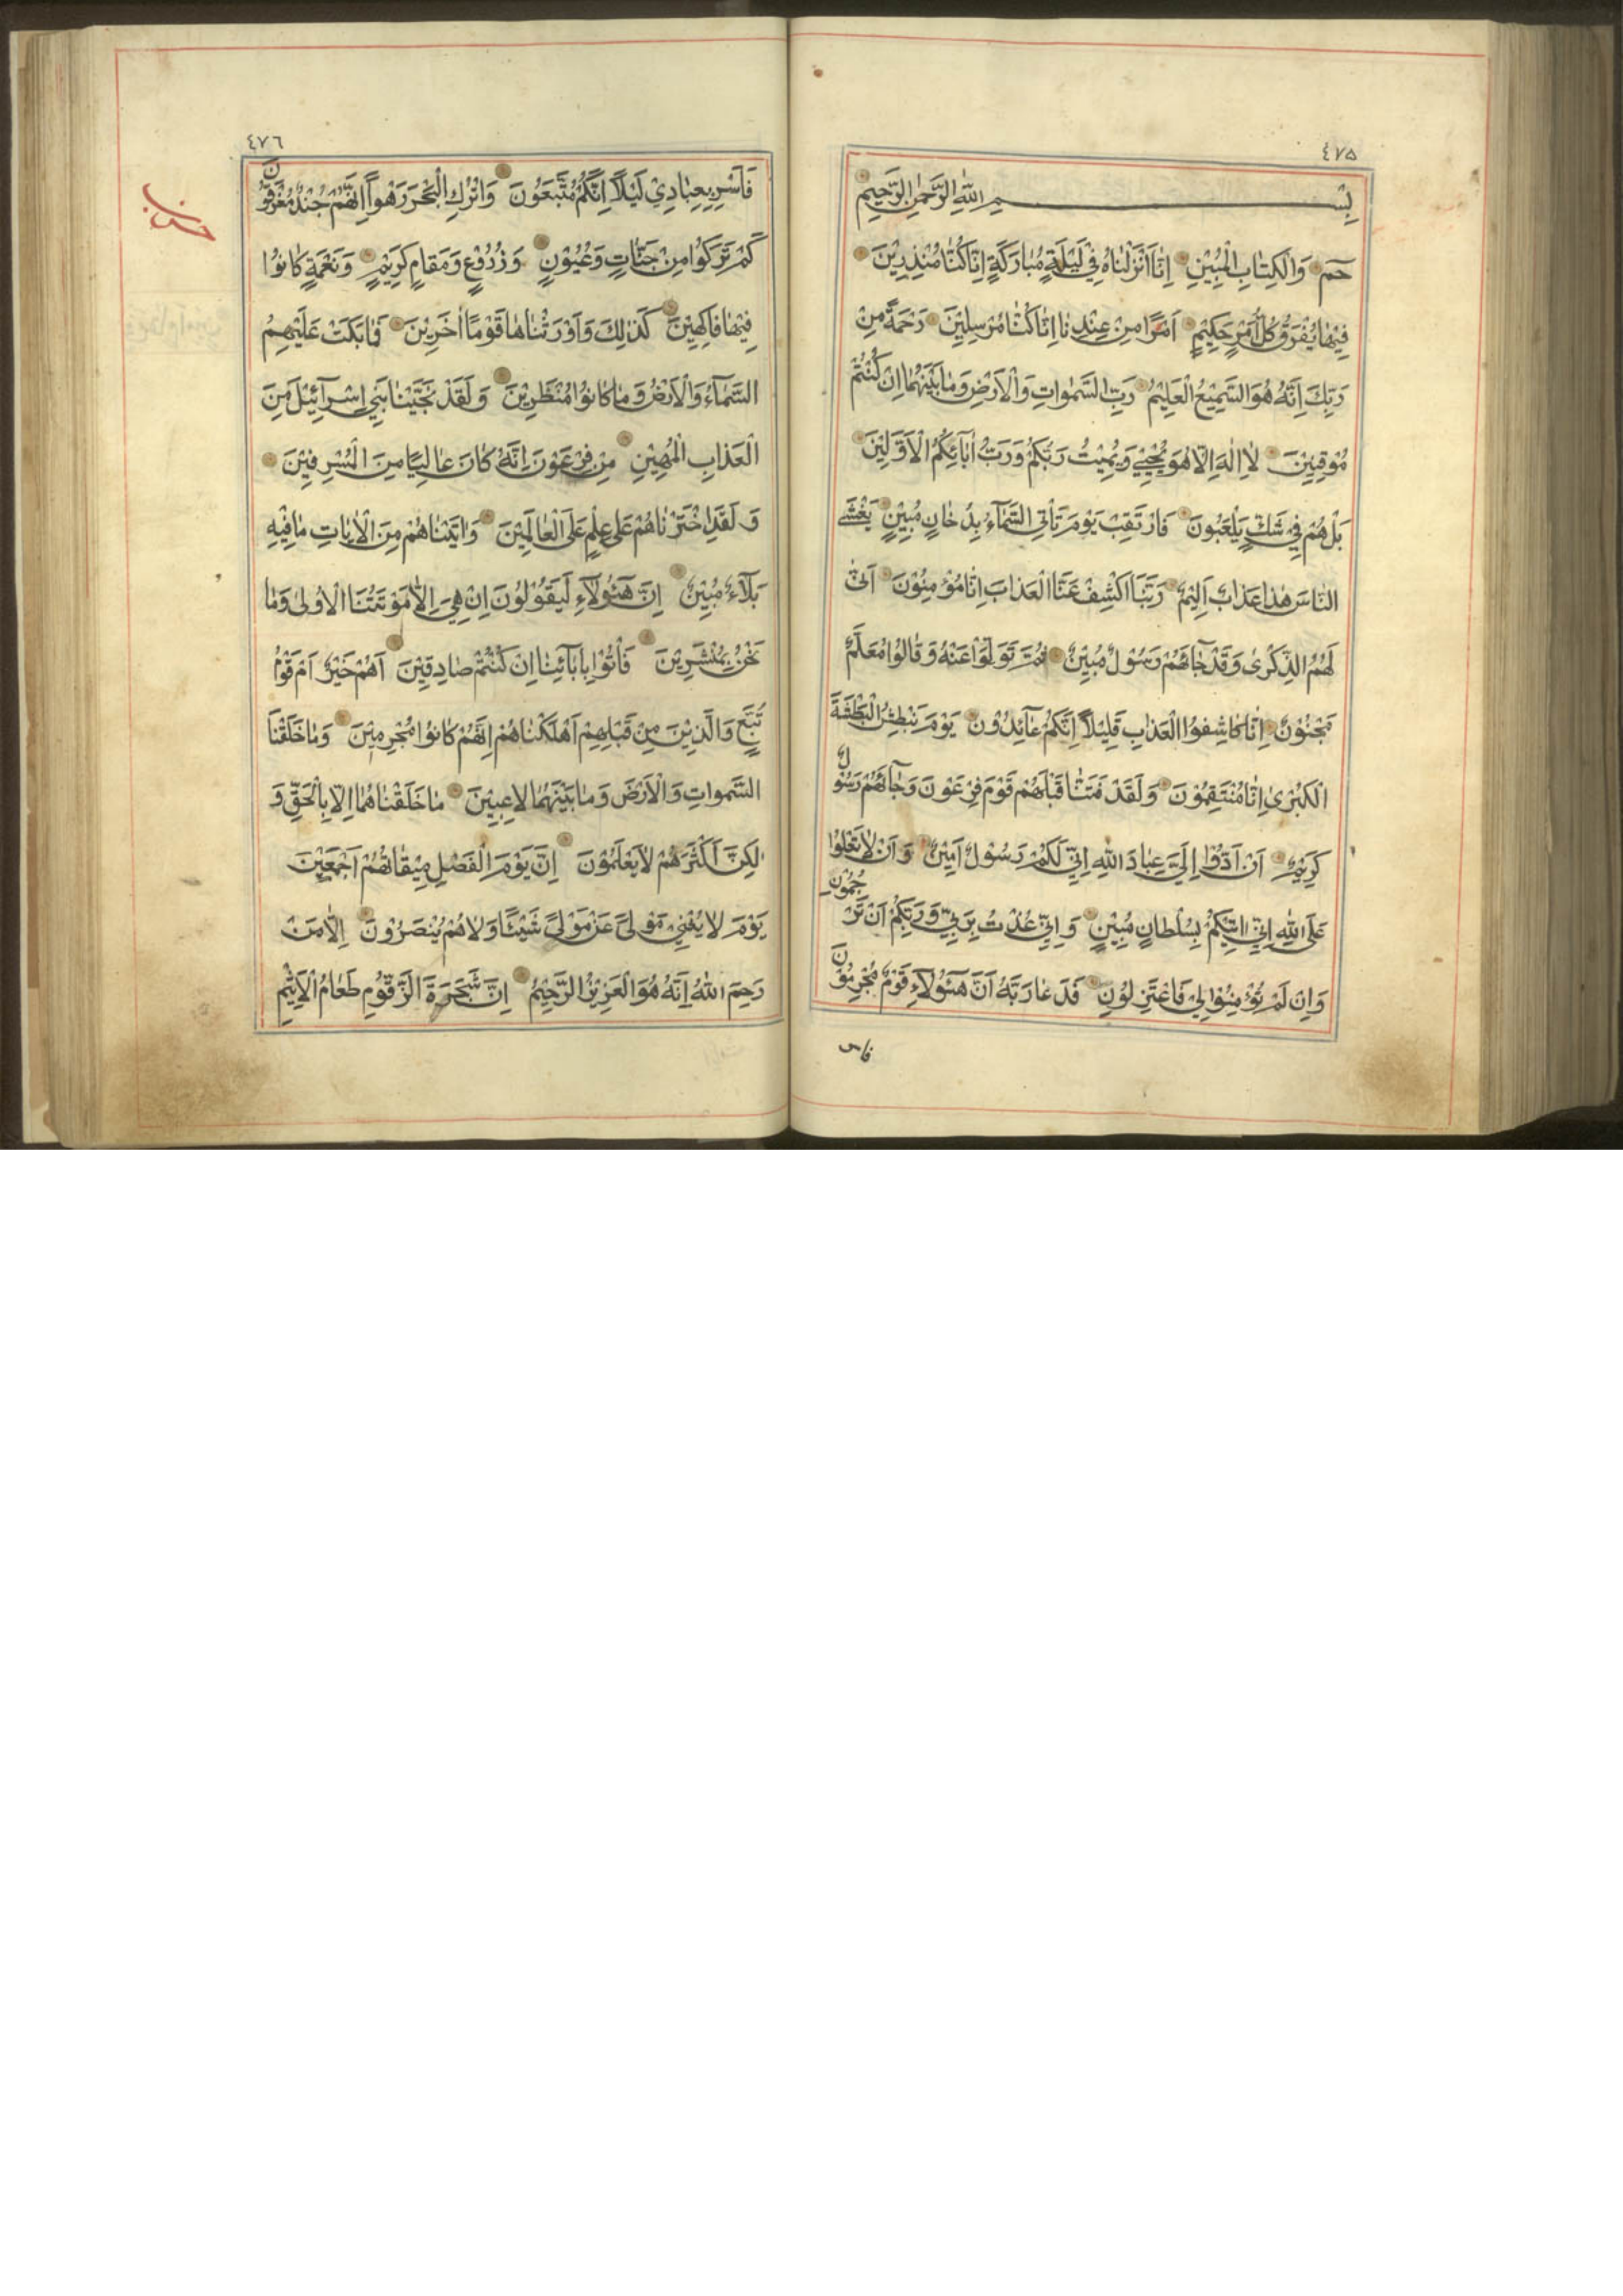 ٤٧٥
بِسْمِ اللّٰهِ الرَّحْمٰنِ الرَّحِيمِ
حٓمٓ وَالْكِتَابِ الْمُبِيْنِ اِنَّا اَنْزَلْنَاهُ فِيْ لَيْلَةٍ مُبَارَكَةٍ اِنَّا كُنَّا مُنْذِرِيْنَ
فِيْهَا يُفْرَقُ كُلُّ اَمْرٍ حَكِيْمٍ اَمْرًا مِنْ عِنْدِنَا اِنَّا كُنَّا مُرْسِلِيْنَ رَحْمَةً مِنْ
رَبِّكَ اِنَّهُ هُوَ السَّمِيْعُ الْعَلِيْمُ رَبِّ السَّمٰوَاتِ وَالْاَرْضِ وَمَا بَيْنَهُمَا اِنْ كُنْتُمْ
مُوْقِنِيْنَ لَا اِلٰهَ اِلَّا هُوَ يُحْيِيْ وَيُمِيْتُ رَبُّكُمْ وَرَبُّ اٰبَآئِكُمُ الْاَوَّلِيْنَ
بَلْ هُمْ فِيْ شَكٍّ يَلْعَبُوْنَ فَارْتَقِبْ يَوْمَ تَاْتِي السَّمَآءُ بِدُخَانٍ مُبِيْنٍ يَغْشَى
النَّاسَ هٰذَا عَذَابٌ اَلِيْمٌ رَبَّنَا اكْشِفْ عَنَّا الْعَذَابَ اِنَّا مُؤْمِنُوْنَ اَنّٰى
لَهُمُ الذِّكْرٰى وَقَدْ جَآءَهُمْ رَسُوْلٌ مُبِيْنٌ ثُمَّ تَوَلَّوْا عَنْهُ وَقَالُوْا مُعَلَّمٌ
مَجْنُوْنٌ اِنَّا كَاشِفُوا الْعَذَابِ قَلِيْلًا اِنَّكُمْ عَآئِدُوْنَ يَوْمَ نَبْطِشُ الْبَطْشَةَ
الْكُبْرٰى اِنَّا مُنْتَقِمُوْنَ وَلَقَدْ فَتَنَّا قَبْلَهُمْ قَوْمَ فِرْعَوْنَ وَجَآءَهُمْ رَسُوْلٌ
كَرِيْمٌ اَنْ اَدُّوْا اِلَيَّ عِبَادَ اللّٰهِ اِنِّيْ لَكُمْ رَسُوْلٌ اَمِيْنٌ وَاَنْ لَا تَعْلُوْا
عَلَى اللّٰهِ اِنِّيْ اٰتِيْكُمْ بِسُلْطَانٍ مُبِيْنٍ وَاِنِّيْ عُذْتُ بِرَبِّيْ وَرَبِّكُمْ اَنْ تَرْجُمُوْنِ
وَاِنْ لَمْ تُؤْمِنُوْا لِيْ فَاعْتَزِلُوْنِ فَدَعَا رَبَّهُ اَنَّ هٰٓؤُلَآءِ قَوْمٌ مُجْرِمُوْنَ
فاس
٤٧٦
فَاَسْرِ بِعِبَادِيْ لَيْلًا اِنَّكُمْ مُتَّبَعُوْنَ وَاتْرُكِ الْبَحْرَ رَهْوًا اِنَّهُمْ جُنْدٌ مُغْرَقُوْنَ
كَمْ تَرَكُوْا مِنْ جَنَّاتٍ وَعُيُوْنٍ وَزُرُوْعٍ وَمَقَامٍ كَرِيْمٍ وَنَعْمَةٍ كَانُوْا
فِيْهَا فَاكِهِيْنَ كَذٰلِكَ وَاَوْرَثْنَاهَا قَوْمًا اٰخَرِيْنَ فَمَا بَكَتْ عَلَيْهِمُ
السَّمَآءُ وَالْاَرْضُ وَمَا كَانُوْا مُنْظَرِيْنَ وَلَقَدْ نَجَّيْنَا بَنِيْ اِسْرَآئِيْلَ مِنَ
الْعَذَابِ الْمُهِيْنِ مِنْ فِرْعَوْنَ اِنَّهُ كَانَ عَالِيًا مِنَ الْمُسْرِفِيْنَ
وَلَقَدِ اخْتَرْنَاهُمْ عَلٰى عِلْمٍ عَلَى الْعَالَمِيْنَ وَاٰتَيْنَاهُمْ مِنَ الْاٰيَاتِ مَا فِيْهِ
بَلَآءٌ مُبِيْنٌ اِنَّ هٰٓؤُلَآءِ لَيَقُوْلُوْنَ اِنْ هِيَ اِلَّا مَوْتَتُنَا الْاُوْلٰى وَمَا
نَحْنُ بِمُنْشَرِيْنَ فَاْتُوْا بِاٰبَآئِنَا اِنْ كُنْتُمْ صَادِقِيْنَ اَهُمْ خَيْرٌ اَمْ قَوْمُ
تُبَّعٍ وَالَّذِيْنَ مِنْ قَبْلِهِمْ اَهْلَكْنَاهُمْ اِنَّهُمْ كَانُوْا مُجْرِمِيْنَ وَمَا خَلَقْنَا
السَّمٰوَاتِ وَالْاَرْضَ وَمَا بَيْنَهُمَا لَاعِبِيْنَ مَا خَلَقْنَاهُمَا اِلَّا بِالْحَقِّ وَ
لٰكِنَّ اَكْثَرَهُمْ لَا يَعْلَمُوْنَ اِنَّ يَوْمَ الْفَصْلِ مِيْقَاتُهُمْ اَجْمَعِيْنَ
يَوْمَ لَا يُغْنِيْ مَوْلًى عَنْ مَوْلًى شَيْئًا وَلَا هُمْ يُنْصَرُوْنَ اِلَّا مَنْ
رَحِمَ اللّٰهُ اِنَّهُ هُوَ الْعَزِيْزُ الرَّحِيْمُ اِنَّ شَجَرَةَ الزَّقُّوْمِ طَعَامُ الْاَثِيْمِ